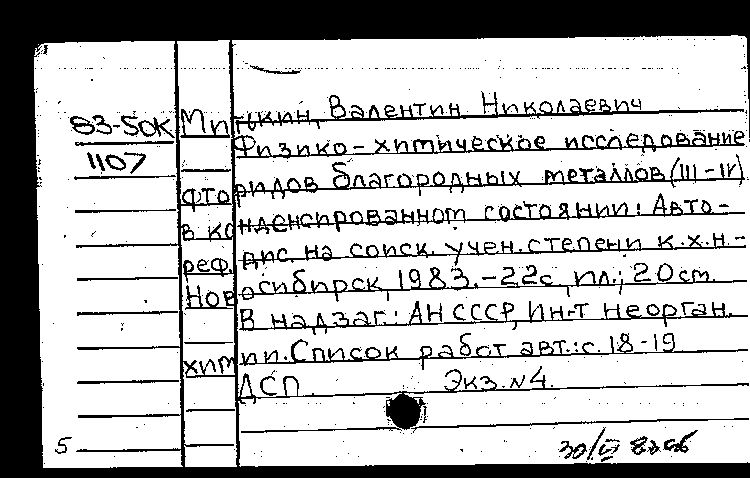 83-50К Митькин, Валентин Николаевич
1107 Физико-химическое исследование
фторидов благородных металлов (III-IV)
в конденсированном состоянии: Авто-
реф. дис. на соиск. учен. степени к.х.н. -
Новосибирск, 1983. - 22с., ил.; 20 см.
В надзаг.: АН СССР, Ин-т неорган.
химии. Список работ авт.: с. 18-19
ДСП. Экз. №4.
5